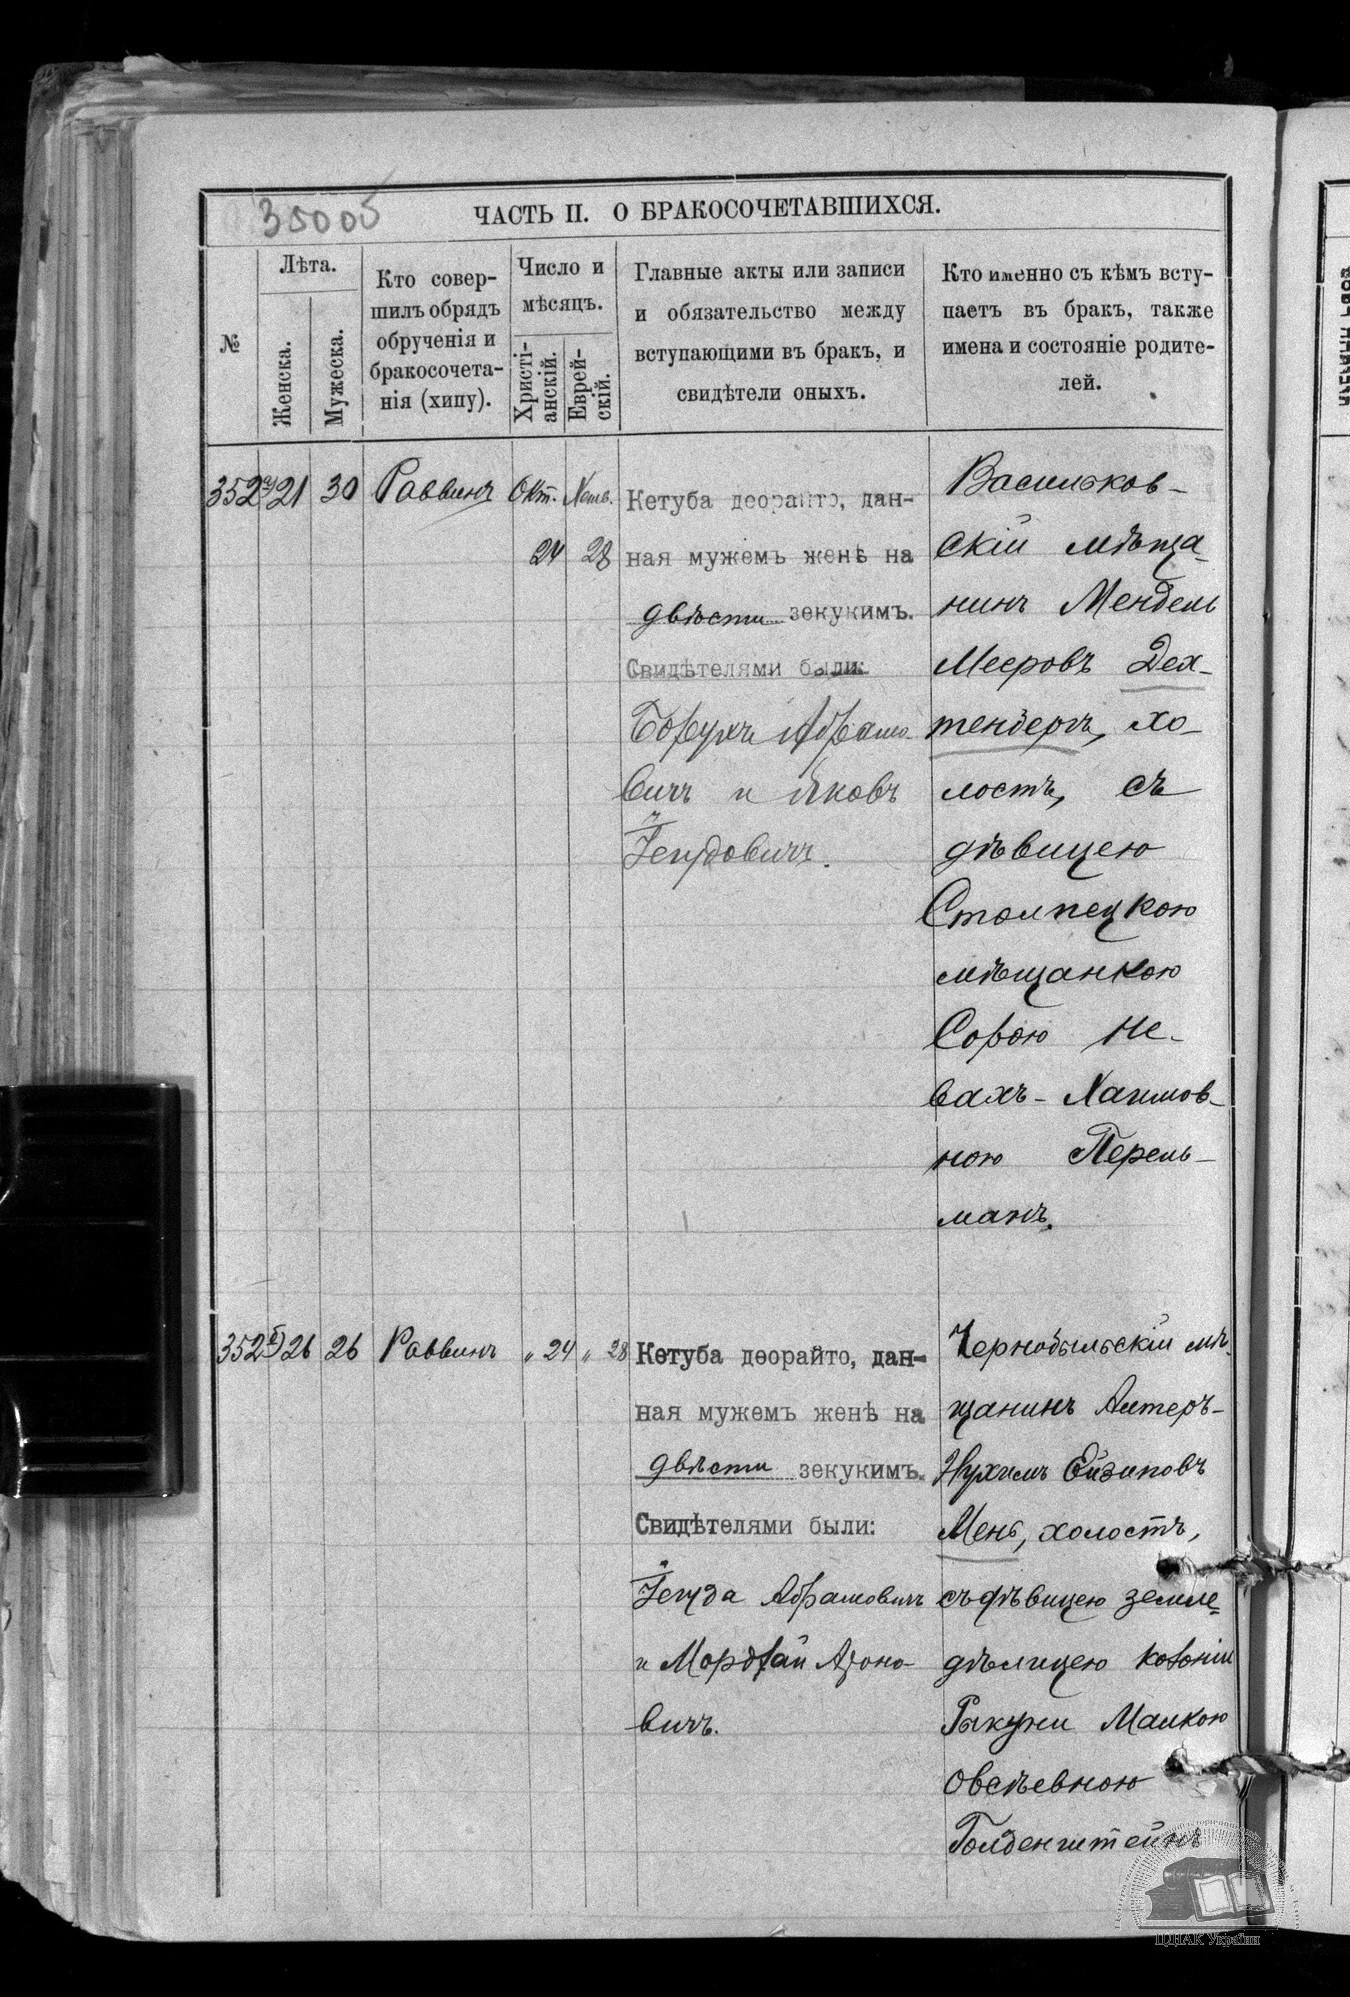 35005
ЧАСТЬ II. О БРАКОСОЧЕТАВШИХСЯ.
№
Лѣта.
Женска.
Мужеска.
Кто совер-
шилъ обрядъ
обрученія и
бракосочета-
нія (хипу).
Число и
мѣсяцъ.
Христі-
анскій.
Еврей-
скій.
Главные акты или записи
и обязательство между
вступающими въ бракъ, и
свидѣтели оныхъ.
Кто именно съ кѣмъ всту-
паетъ въ бракъ, также
имена и состояніе родите-
лей.
352а) 21 30 Раввинъ Окт. Хешв.
24 28
Кетуба деорайто, дан-
ная мужемъ женѣ на
двѣсти зекукимъ.
Свидѣтелями были:
Борухъ Абрамо-
вичъ и Яковъ
Іегудовичъ.
Васильков-
скій мѣща-
нинъ Мендель
Мееровъ Дех-
тендеръ, хо-
лостъ, съ
дѣвицею
Столпецкою
мѣщанкою
Сорою Не-
вахъ-Хаимов-
ною Перель-
манъ.
352б) 26 26 Раввинъ " 24 " 28
Кетуба деорайто, дан-
ная мужемъ женѣ на
двѣсти зекукимъ.
Свидѣтелями были:
Іегуда Абрамовичъ
и Мордхай Ароно-
вичъ.
Чернобыльскій мѣ-
щанинъ Алтеръ-
Нухимъ Ейзиковъ
Мень, холостъ,
съ дѣвицею земле-
дѣлицею колоніи
Рыкуни Малкою
Овсѣевною
Голденштейнъ
ЦДІАК України